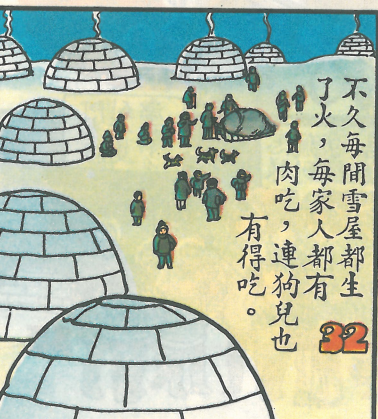 不久每間雪屋都生
了火，每家人都有
肉吃，連狗兒也
有得吃。
32